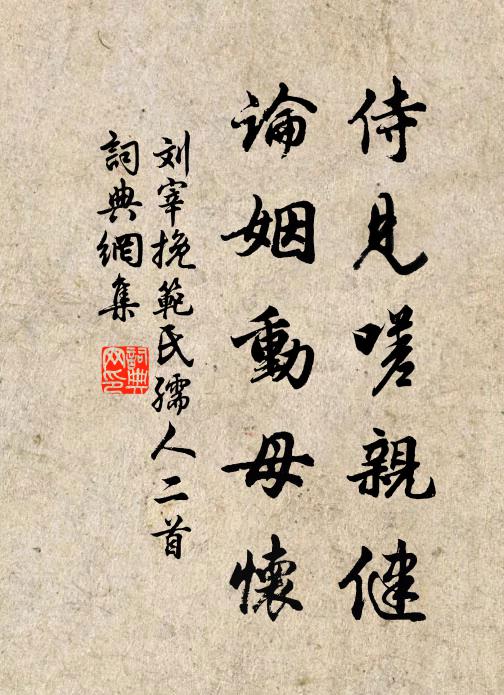 侍見嗟親健
論姻動母懷
刘宰挽範氏孺人二首
詞典網集
詞典
网印